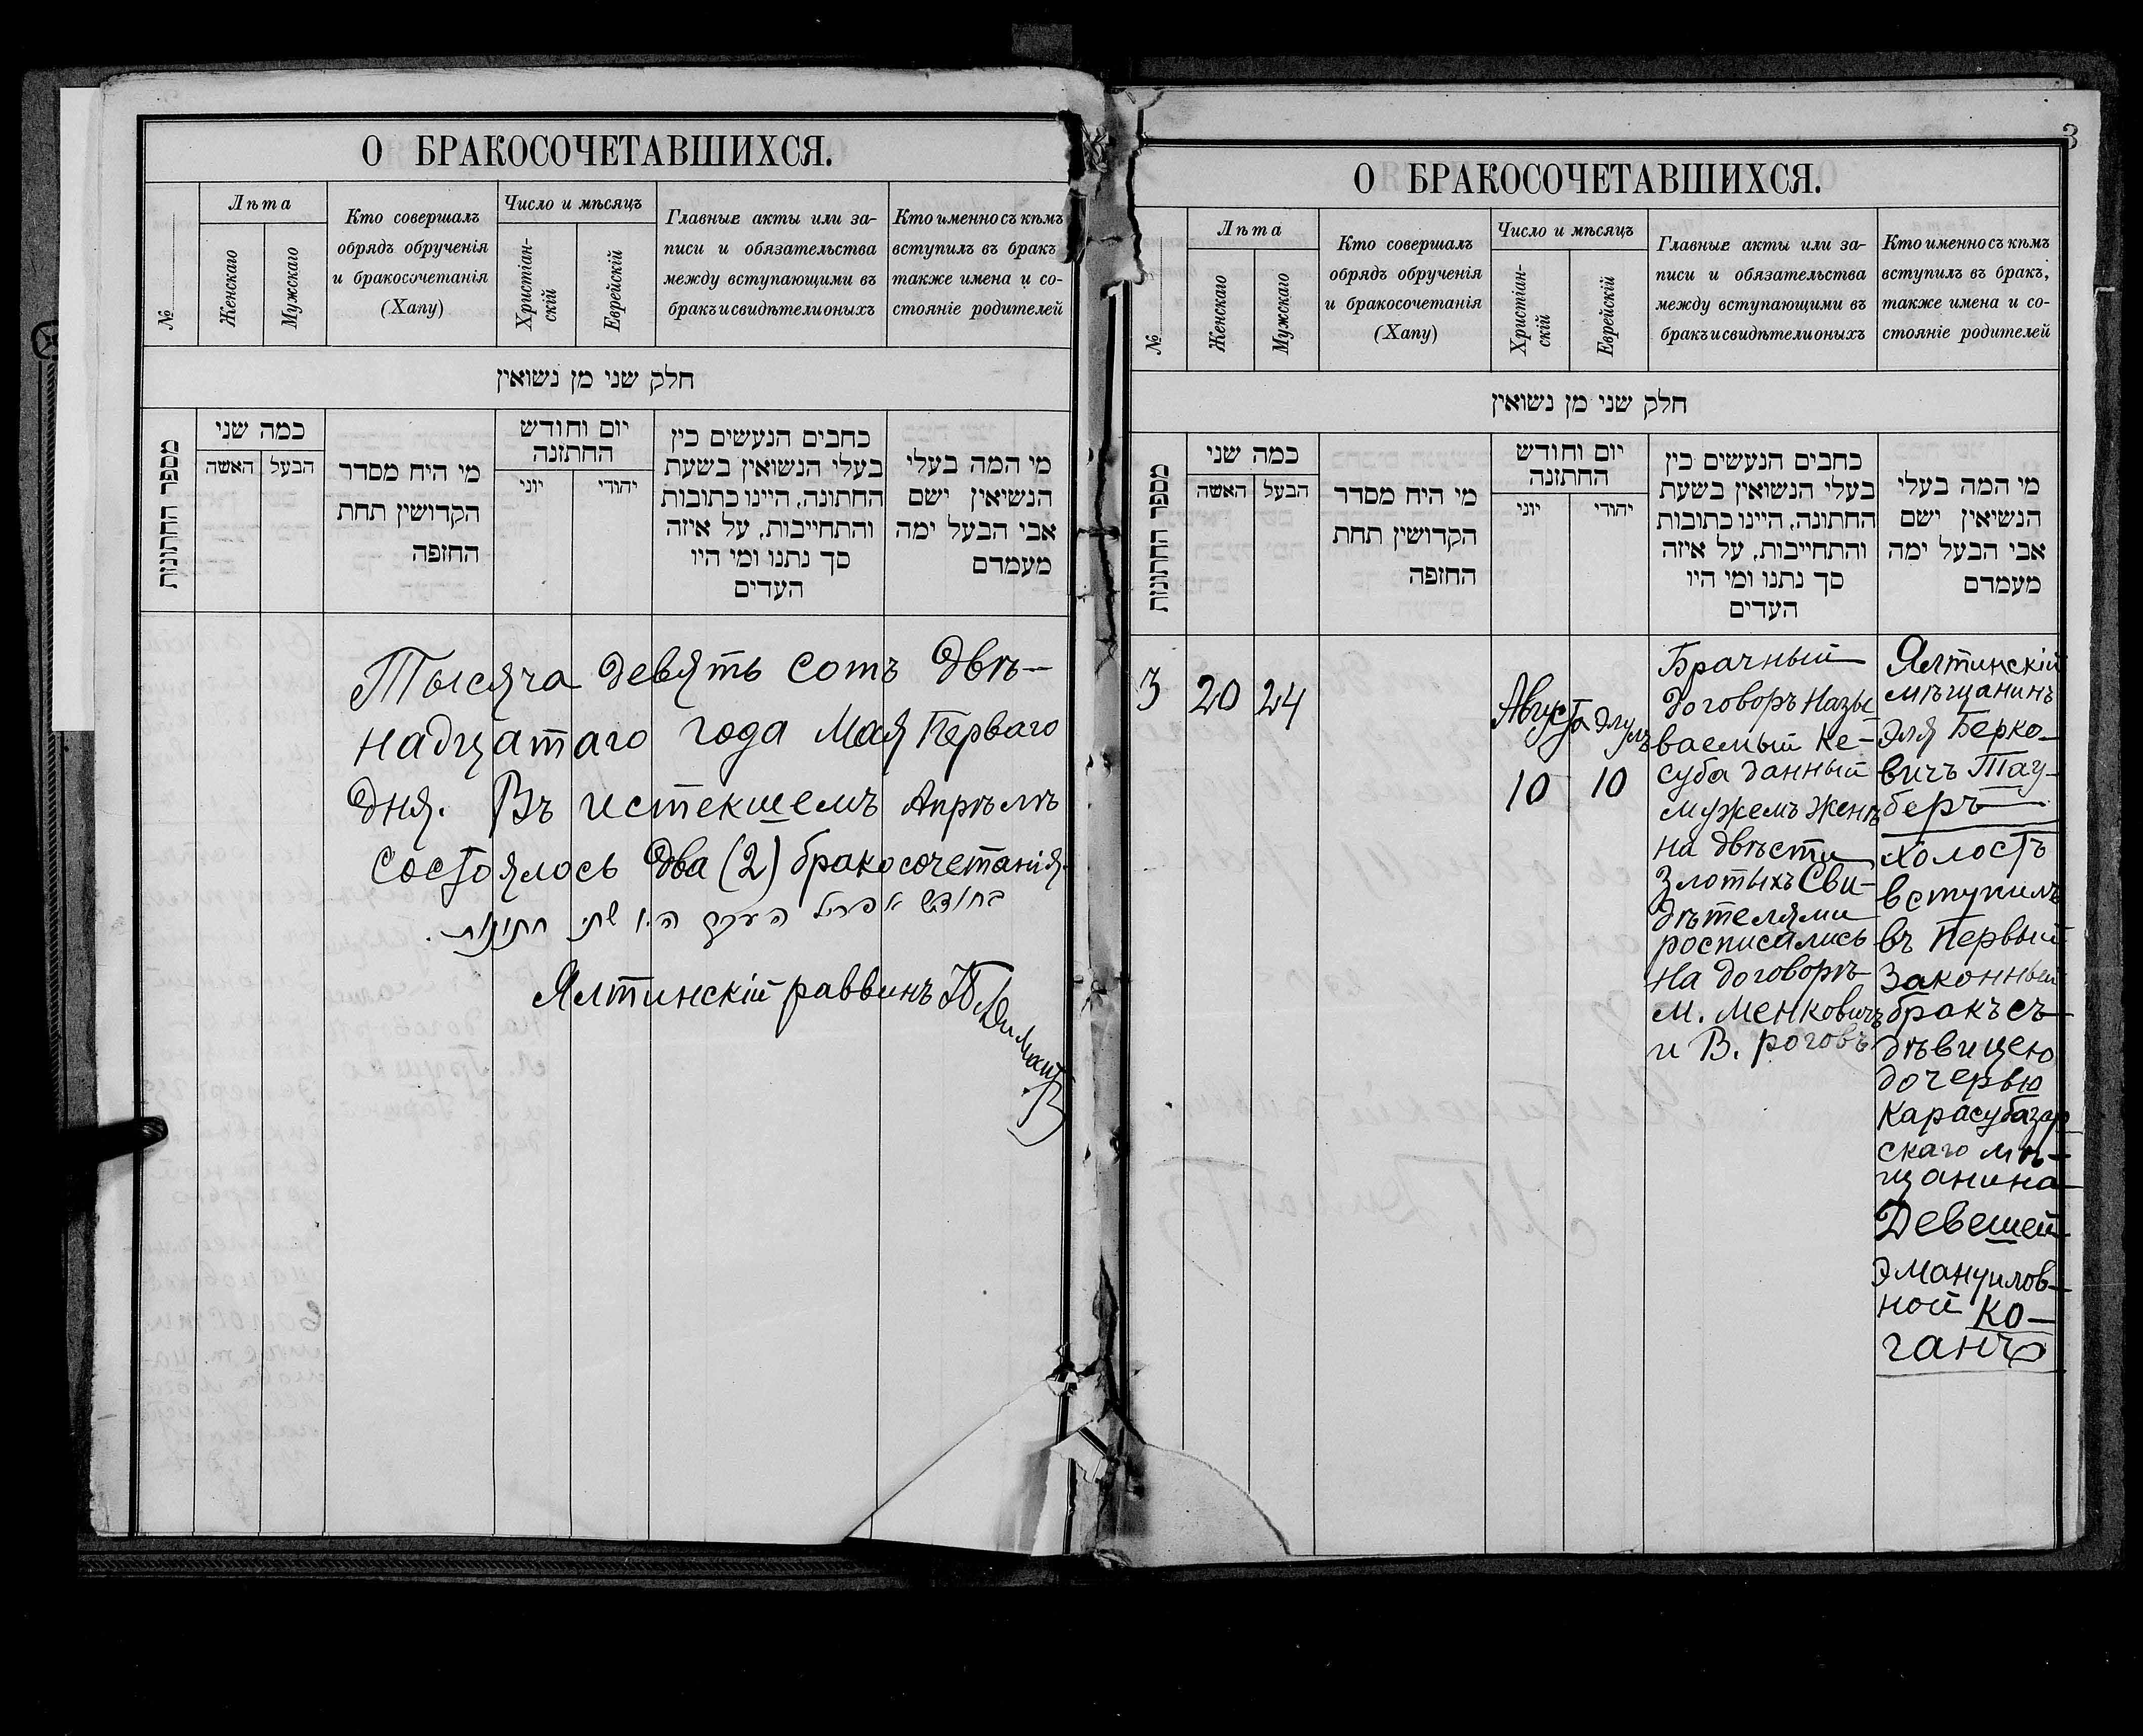 О БРАКОСОЧЕТАВШИХСЯ.
№
Лѣта
Женскаго
Мужскаго
Кто совершалъ
обрядъ обрученія
и бракосочетанія
(Хапу)
Число и мѣсяцъ
Христіан-
скій
Еврейскій
Главные акты или за-
писи и обязательства
между вступающими въ
бракъ и свидѣтели оныхъ
Кто именно съ кѣмъ
вступилъ въ бракъ
также имена и со-
стояніе родителей
חלק שני מן נשואין
מספר החתונות
כמה שני
האשה
הבעל
מי היח מסדר
הקדושין תחת
החופה
יום וחודש
החתונה
יוני
יהודי
כחבים הנעשים כין
בעלי הנשואין בשעת
החתונה, היינו כתובות
והתחייבות, על איזה
סך נתנו ומי היו
העדים
מי המה בעלי
הנשיאין ישם
אבי הבעל ימה
מעמדם
Тысяча девять сотъ двѣ-
надцатаго года Мая Перваго
дня. Въ истекшемъ Апрѣлѣ
состоялось два (2) бракосочетанія.
בחודש אפריל העבר היו שתי חתונות.
Ялтинскій раввинъ
3
О БРАКОСОЧЕТАВШИХСЯ.
№
Лѣта
Женскаго
Мужскаго
Кто совершалъ
обрядъ обрученія
и бракосочетанія
(Хапу)
Число и мѣсяцъ
Христіан-
скій
Еврейскій
Главные акты или за-
писи и обязательства
между вступающими въ
бракъ и свидѣтели оныхъ
Кто именно съ кѣмъ
вступилъ въ бракъ,
также имена и со-
стояніе родителей
חלק שני מן נשואין
מספר החתונות
כמה שני
האשה
הבעל
מי היח מסדר
הקדושין תחת
החופה
יום וחודש
החתונה
יוני
יהודי
כחבים הנעשים כין
בעלי הנשואין בשעת
החתונה, היינו כתובות
והתחייבות, על איזה
סך נתנו ומי היו
העדים
מי המה בעלי
הנשיאין ישם
אבי הבעל ימה
מעמדם
3
20
24
Августа
10
Элулъ
10
Брачный
договоръ назы
ваемый Ке-
суба данный
мужемъ женѣ
на двѣсти
злотыхъ Сви-
дѣтелями
росписались
на договорѣ
М. Менковичъ
и В. роговъ
Ялтинскій
мѣщанинъ
Эля Берко-
вичъ Тау-
беръ
холостъ
вступилъ
въ Первый
Законный
бракъ съ
дѣвицею
дочерью
Карасубазар
скаго мѣ-
щанина
Девешей
Эмануилов-
ной Ко-
ганъ